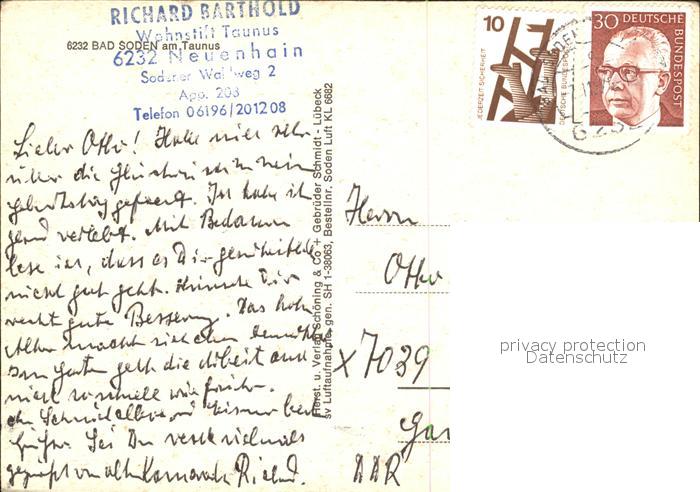 RICHARD BARTHOLD
Wohnstift Taunus
6232 BAD SODEN am Taunus
6232 Neuenhain
Sodener Waldweg 2
App. 208
Telefon 06196/201208
10
JEDERZEIT SICHERHEIT
DEUTSCHE BUNDESPOST
30 DEUTSCHE
BUNDESPOST
6232
Lieber Otto! Habe mich sehr
über die Glückwünsche zu meinem
Geburtstag gefreut. Ihn habe ich
verlebt. Mit Bedauern
lese ich, dass es Dir gesundheitlich
nicht gut geht. Wünsche Dir
recht gute Besserung. Das hohe
Alter macht sich eben bemerkbar
Im Garten geht die Arbeit auch
nicht so schnell wie früher.
Sei Du vielmals
gegrüßt von alten Kamerade Richard.
Herst. u. Verlag Schöning & Co + Gebrüder Schmidt - Lübeck
sv Luftaufnahme, gen. SH 1-38063, Bestellnr. Soden Luft KL 6682
Herrn
Otto
x 7039
DDR
privacy protection
Datenschutz